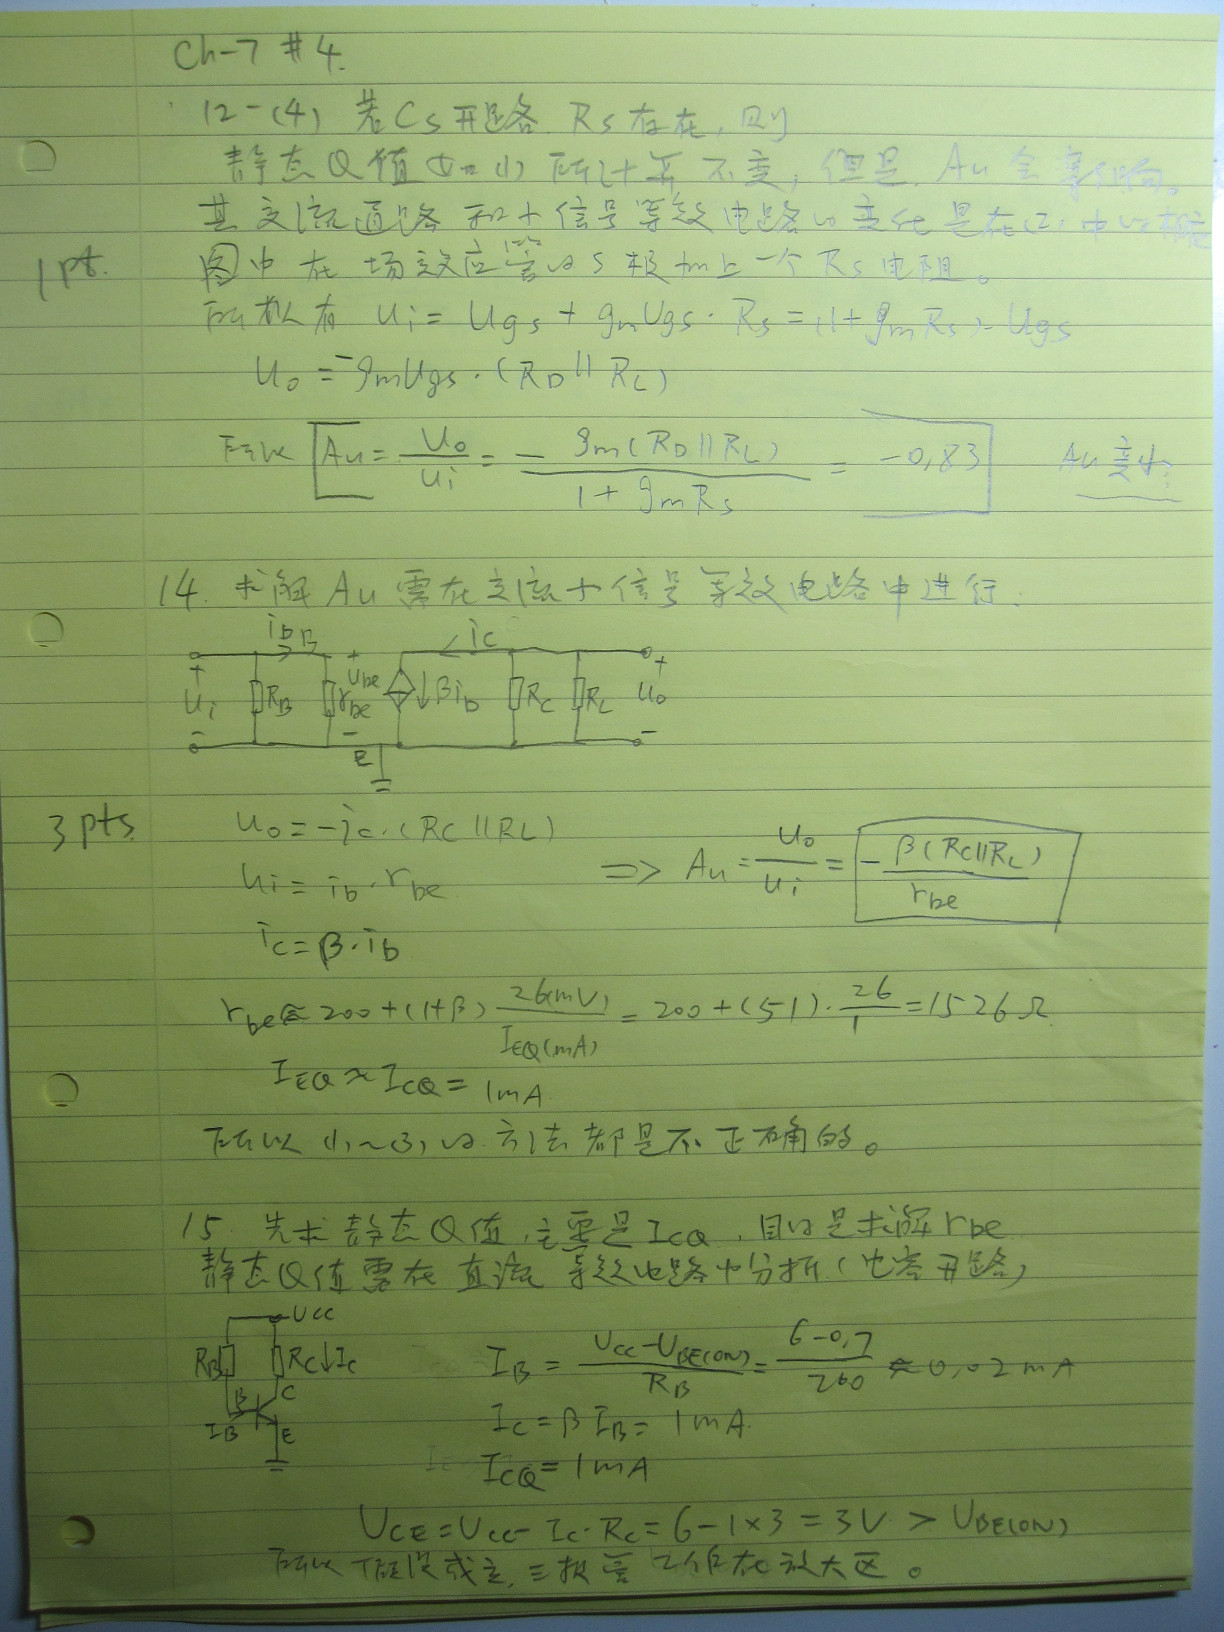 Ch-7 #4.
12-(4) 若Cs开路. Rs存在, 则
静态Q值如(1)所计算不变, 但是 Au会受影响。
其交流通路和小信号等效电路的变化是在(2)中的相应
1 pt.
图中在场效应管的S极加上一个Rs电阻。
所以有 Ui = Ugs + gmUgs · Rs = (1+gmRs) · Ugs
Uo = -gmUgs · (RD || RL)
所以 Au = Uo/Ui = - gm(RD||RL) / (1+gmRs) = -0.83 Au变小
14. 求解Au需在交流小信号等效电路中进行.
ib B ic
+ Ui - RB rbe + Ube - βib RC RL + Uo -
E
3 pts.
Uo = -ic · (RC||RL)
Ui = ib · rbe
⇒ Au = Uo/Ui = - β(RC||RL) / rbe
ic = β · ib
rbe ≈ 200 + (1+β) 26(mV)/IEQ(mA) = 200 + (51) · 26/1 = 1526 Ω
IEQ ≈ ICQ = 1mA
所以(1)~(3)的方法都是不正确的。
15. 先求静态Q值,主要是ICQ, 目的是求解rbe
静态Q值需在直流等效电路中分析(电容开路)
UCC
RB RC ↓ IC
B C
IB E
IB = (UCC-UBE(ON))/RB = (6-0.7)/260 ≈ 0.02 mA
IC = β IB = 1mA.
ICQ = 1mA
UCE = UCC - IC · RC = 6 - 1×3 = 3V > UBE(ON)
所以假设成立, 三极管工作在放大区。